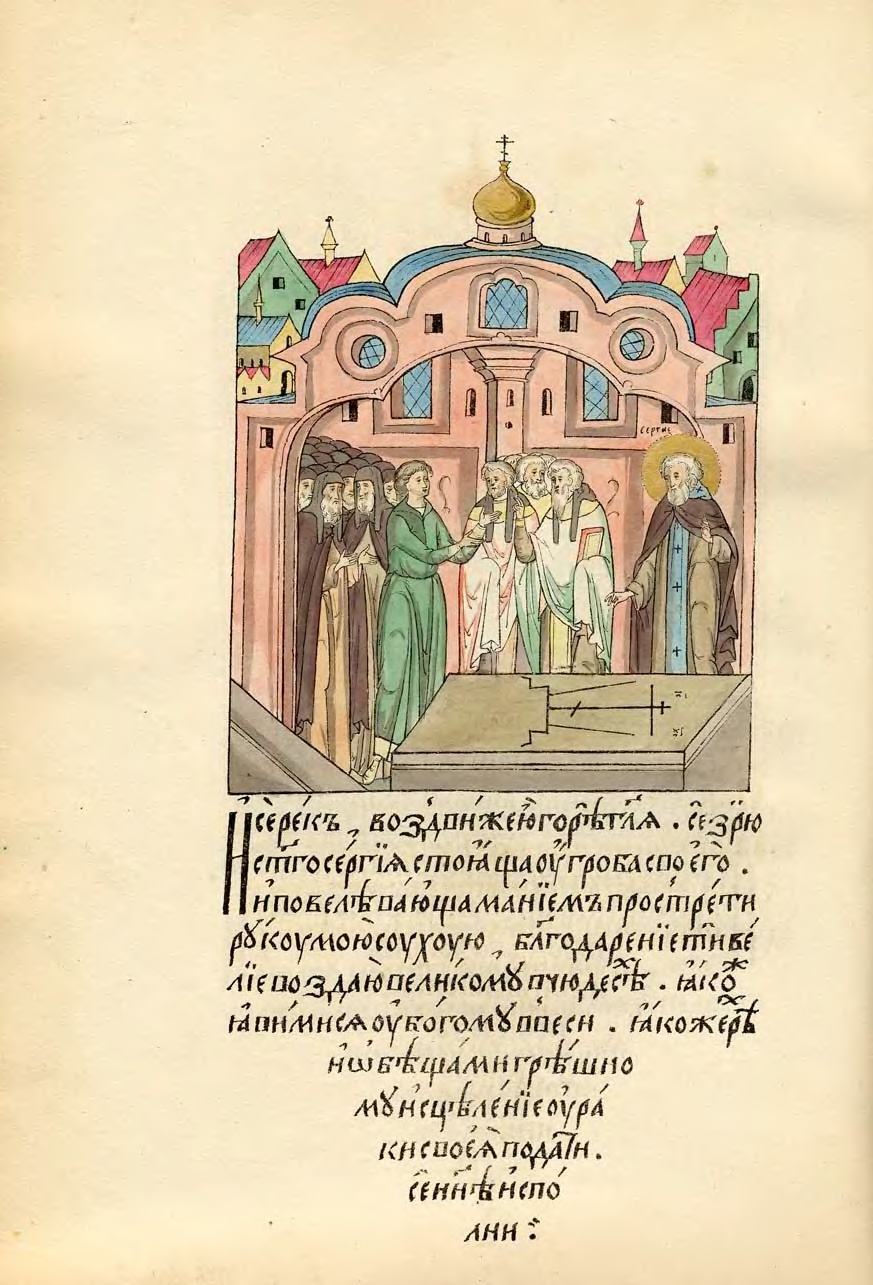 сергие
И҆се́ре́къ , воз̾дви́же́ю҆горѣ̑глѧ . се̑зрю̑
ст҃госе́ргїѧстоѧ́щаоу҆гробасвоего̀ .
И҆повелѣва́ющама́нїемъпростре́ти
рꙋкоумою̀соухоую , бл҃годаре́нїетѝве́
лїевоздаю̀вели́комꙋвчюдесѣ́ⷯ . ꙗ҆́коⷤ
ꙗ҆ви́мисѧоу҆бо́гомꙋввеси . ꙗ҆́кожерѣⷯ
и҆ѡбѣща́мигрѣ́шно
мꙋи҆сцѣле́нїеоу҆ра́
кисвоеѧ̀пода́ти .
се́нн҃ѣи҆спо́
лни :